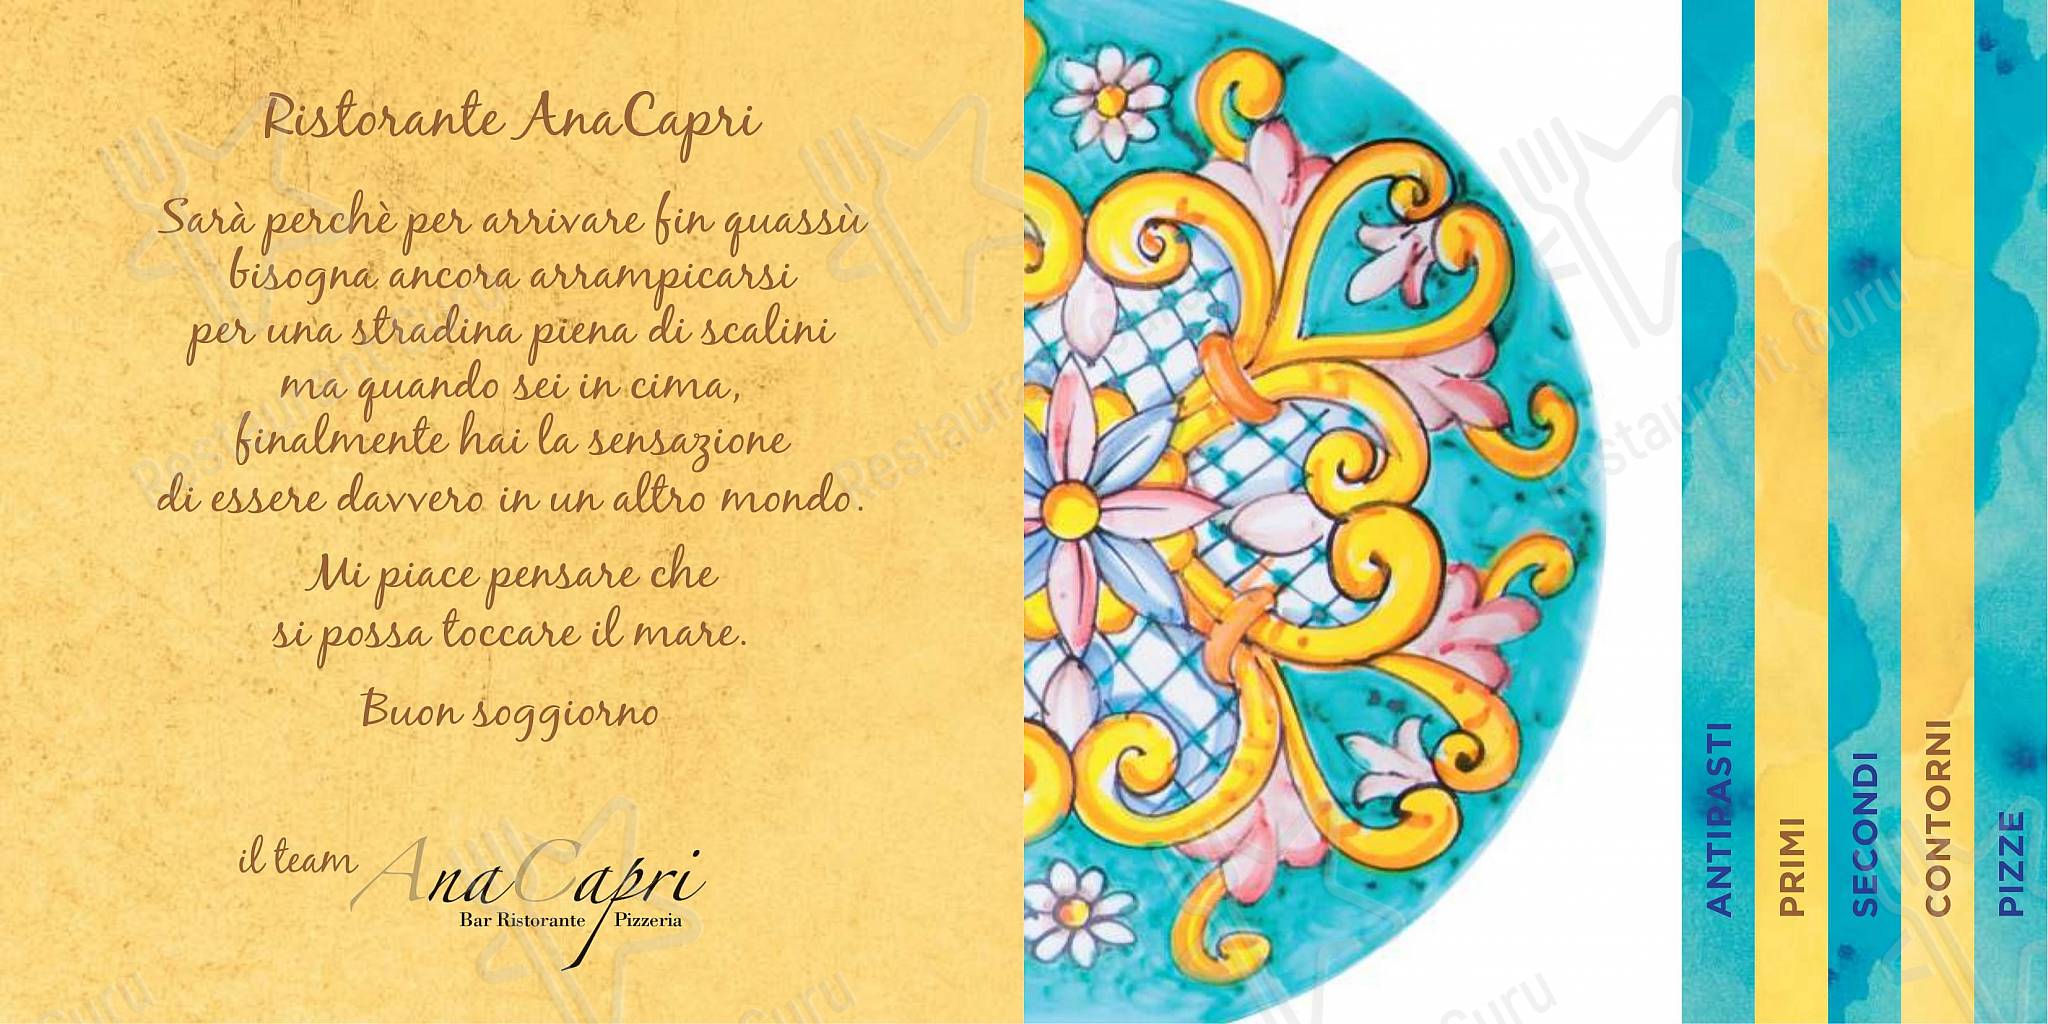 Ristorante AnaCapri
Sarà perchè per arrivare fin quassù
bisogna ancora arrampicarsi
per una stradina piena di scalini
ma quando sei in cima,
finalmente hai la sensazione
di essere davvero in un altro mondo.
Mi piace pensare che
si possa toccare il mare.
Buon soggiorno
il team AnaCapri
Bar Ristorante Pizzeria
ANTIPASTI
PRIMI
SECONDI
CONTORNI
PIZZE
Restaurant Guru
Restaurant Guru
Restaurant Guru
Guru
Guru
Guru